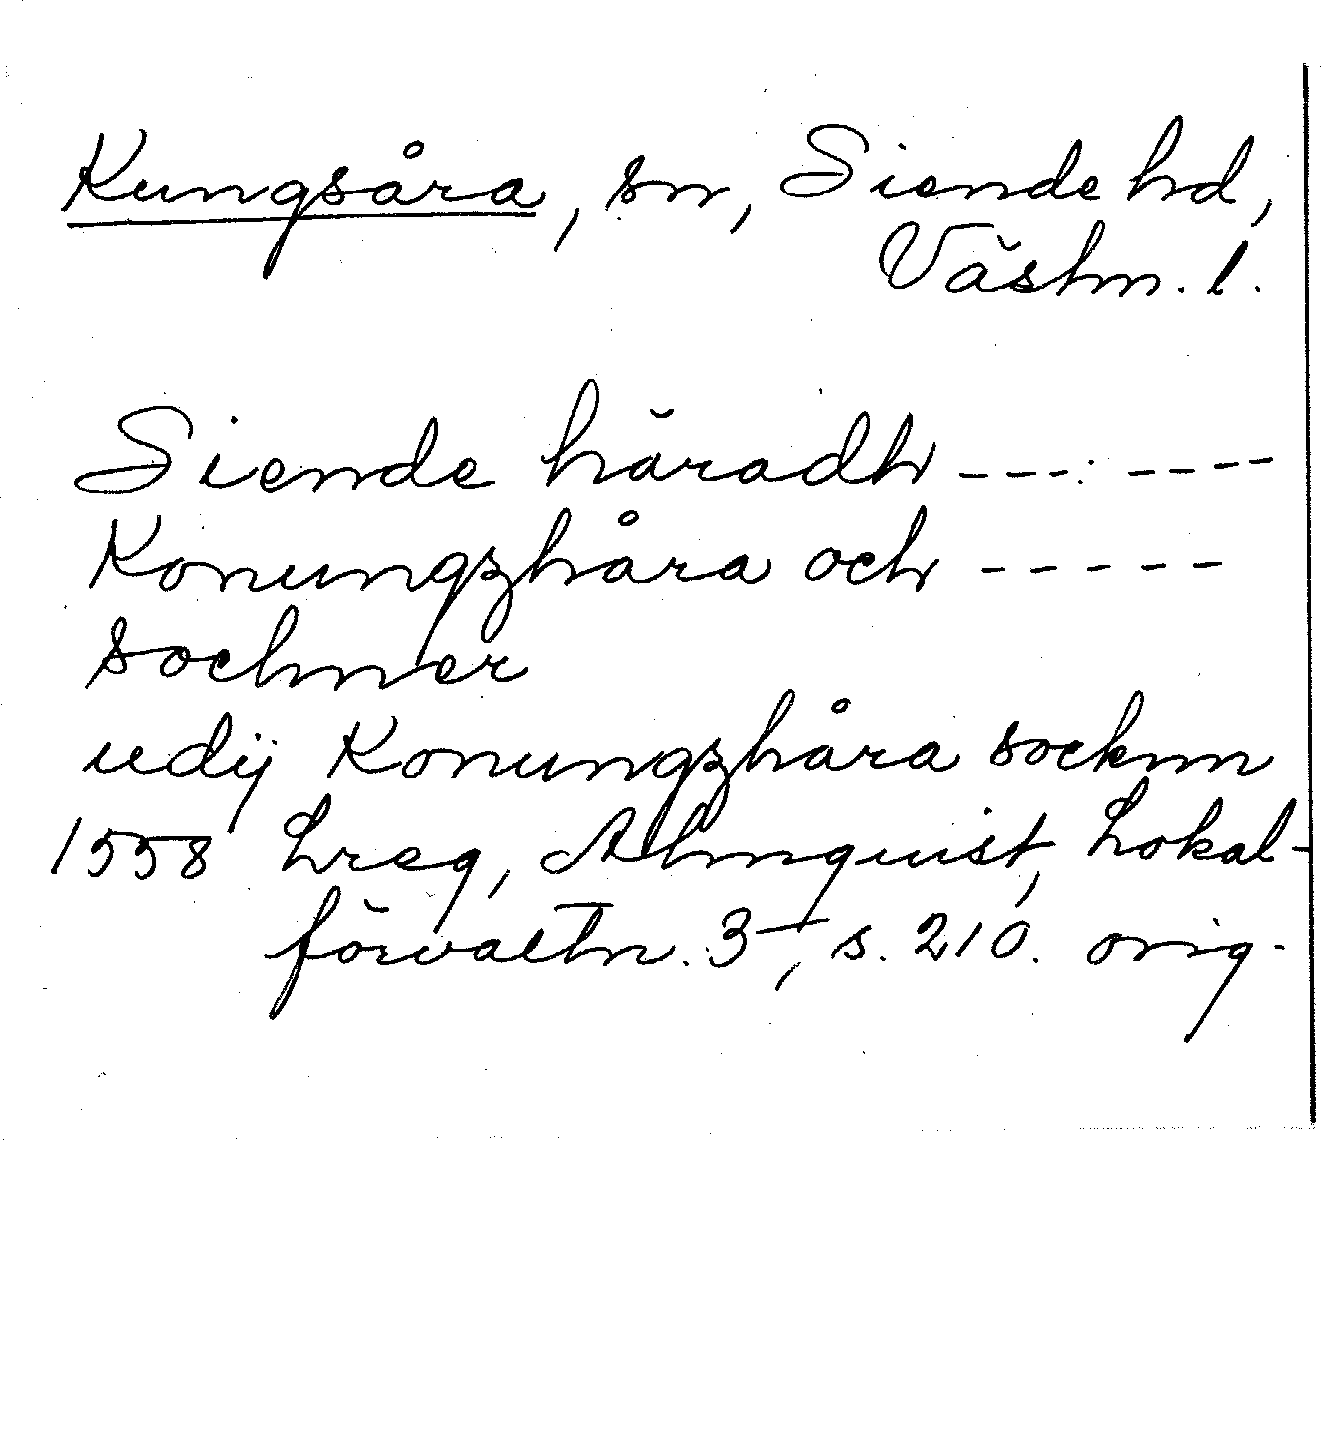 Kungsåra, sn, Siende hd,
Västm. l.
Siende häradh ---: ----
Konungzhåra och -----
sochner
udij Konungzhåra socknn
1558 Lreg, Almquist, Lokal-
förvaltn. 3, s. 210. orig.